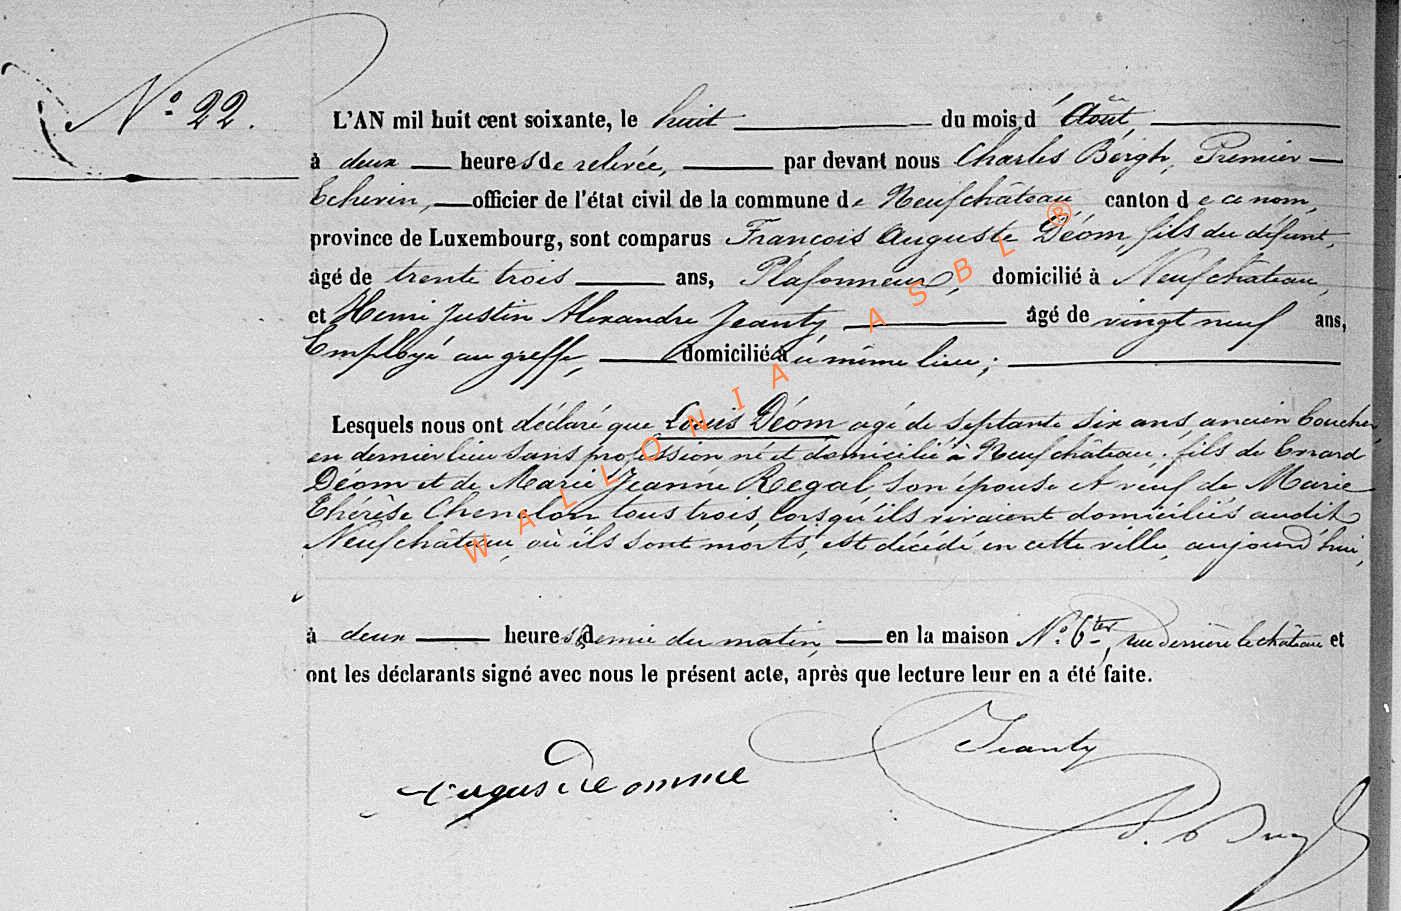 N° 22.
L'AN mil huit cent soixante, le huit du mois d'Août
à deux heures de relevée, par devant nous Charles Bergh, Premier
Echevin, officier de l'état civil de la commune de Neufchâteau canton de ce nom,
province de Luxembourg, sont comparus François Auguste Déom, fils du défunt,
âgé de trente trois ans, Plafonneur, domicilié à Neufchâteau,
et Henri Justin Alexandre Jeanty âgé de vingt neuf ans,
Employé au greffe, domicilié au même lieu;
Lesquels nous ont déclaré que Louis Déom agé de septante six ans, ancien boucher,
en dernier lieu sans profession né et domicilié à Neufchâteau, fils de Errard
Déom et de Marie Jeanne Regal, son épouse et veuf de Marie
Thérèse Chenelon tous trois, lorsqu'ils vivaient domiciliés audit
Neufchâteau, où ils sont morts, est décédé en cette ville, aujourd'hui,
à deux heures & demie du matin, en la maison N° 6ter, rue derrière le château et
ont les déclarants signé avec nous le présent acte, après que lecture leur en a été faite.
Jeanty
WALLONIA ASBL ®